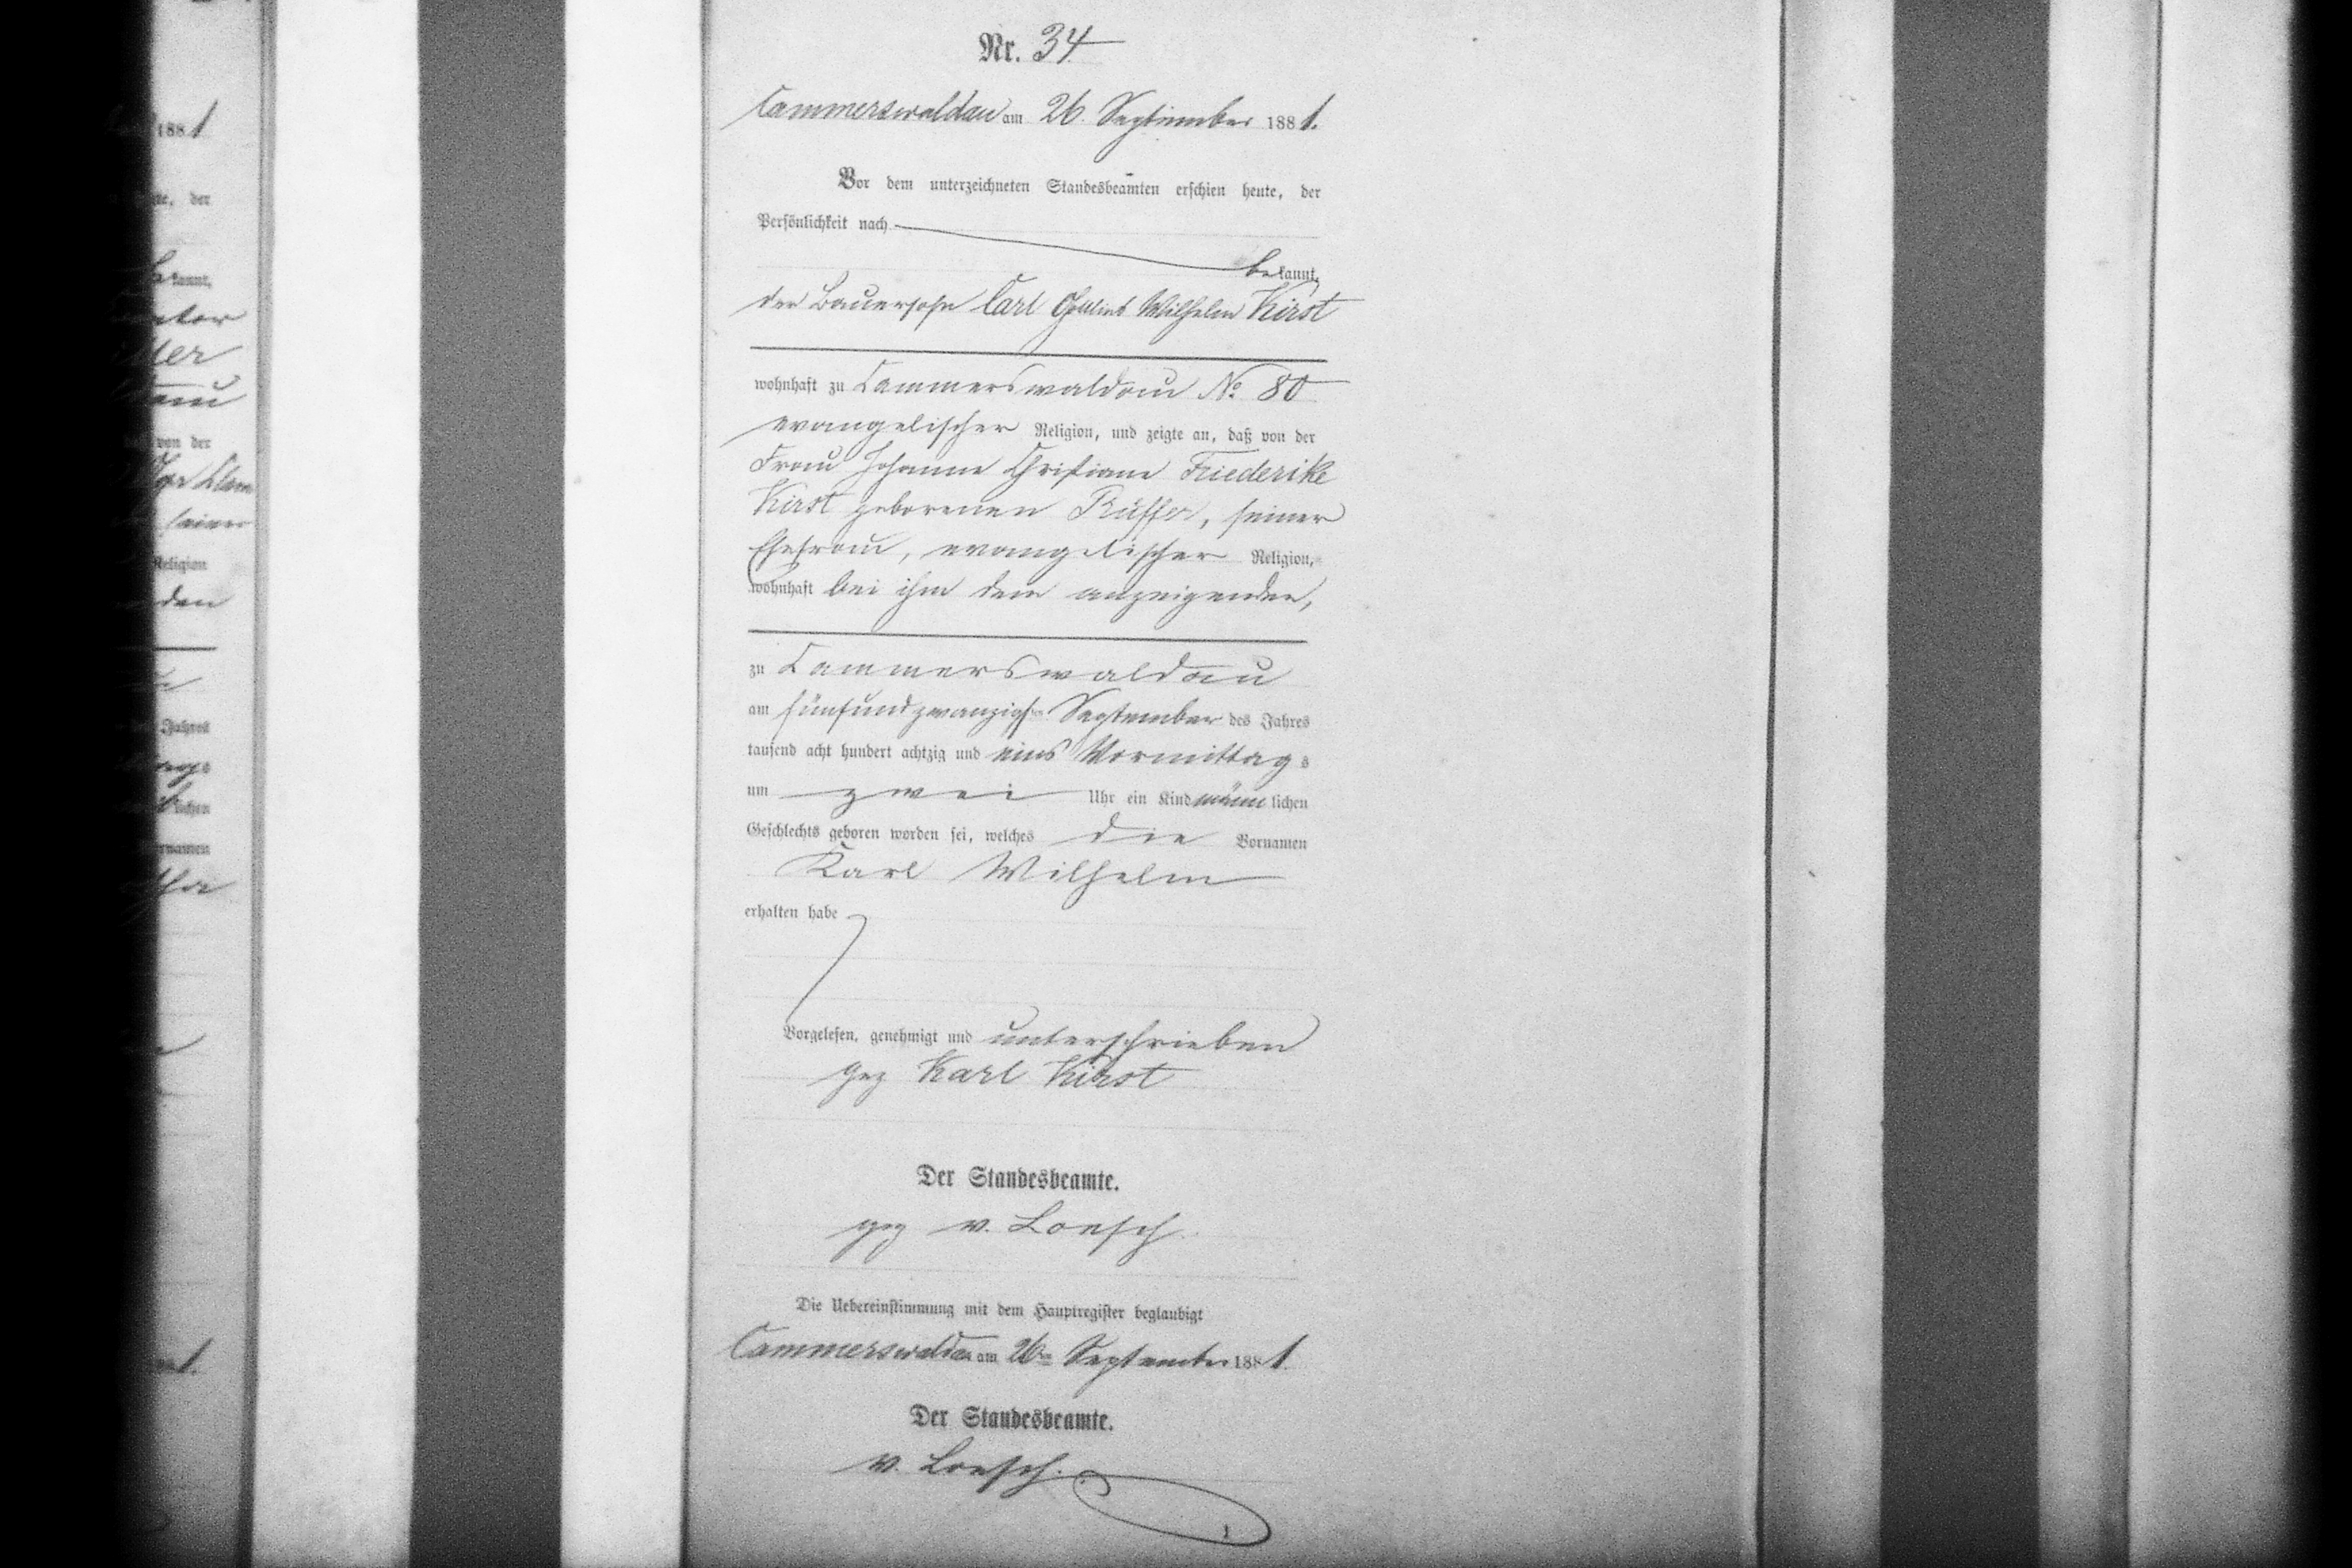 188 1
te, der
kannt,
von der
Religion
den
Jahres
lichen
rnamen
Nr. 34
Cammerswaldau am 26. September 1881.
Vor dem unterzeichneten Standesbeamten erschien heute, der
Persönlichkeit nach
bekannt,
der Bauersohn Carl Wilhelm Kirst
wohnhaft zu Cammerswaldau No 80
evangelischer Religion, und zeigte an, daß von der
Frau Johanne Christiane Friederike
Kirst geborenen Rüffer, seiner
Ehefrau, evangelischer Religion,
wohnhaft bei ihm dem anzeigenden,
zu Cammerswaldau
am fünfundzwanzigsten September des Jahres
tausend acht hundert achtzig und eins Vormittags
um zwei Uhr ein Kind männlichen
Geschlechts geboren worden sei, welches die Vornamen
Karl Wilhelm
erhalten habe
Vorgelesen, genehmigt und unterschrieben
gez Karl Kirst
Der Standesbeamte.
gez v. Loesch.
Die Uebereinstimmung mit dem Hauptregister beglaubigt
Cammerswaldau am 26ten September 1881.
Der Standesbeamte.
v. Loesch.